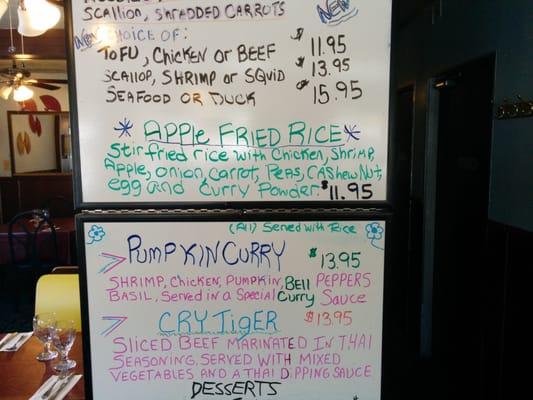 SCALLION, SHREDDED CARROTS
NEW!
NEW CHOICE OF:
TOFU, CHICKEN OR BEEF $11.95
SCALLOP, SHRIMP OR SQUID $13.95
SEAFOOD OR DUCK $15.95
APPLE FRIED RICE
Stir fried rice with Chicken, Shrimp,
Apple, onion, carrot, Peas, CAShew Nut,
egg and Curry Powder. $11.95
(All) Served with Rice
PUMPKIN CURRY $13.95
SHRIMP, Chicken, PUMPKIN, Bell PEPPERS
BASIL, Served in a Special Curry Sauce
CRY TiGER $13.95
SLICED BEEF MARINATED IN THAI
SEASONING, SERVED WITH MIXED
VEGETABLES AND A THAI DIPPING SAUCE
DESSERTS